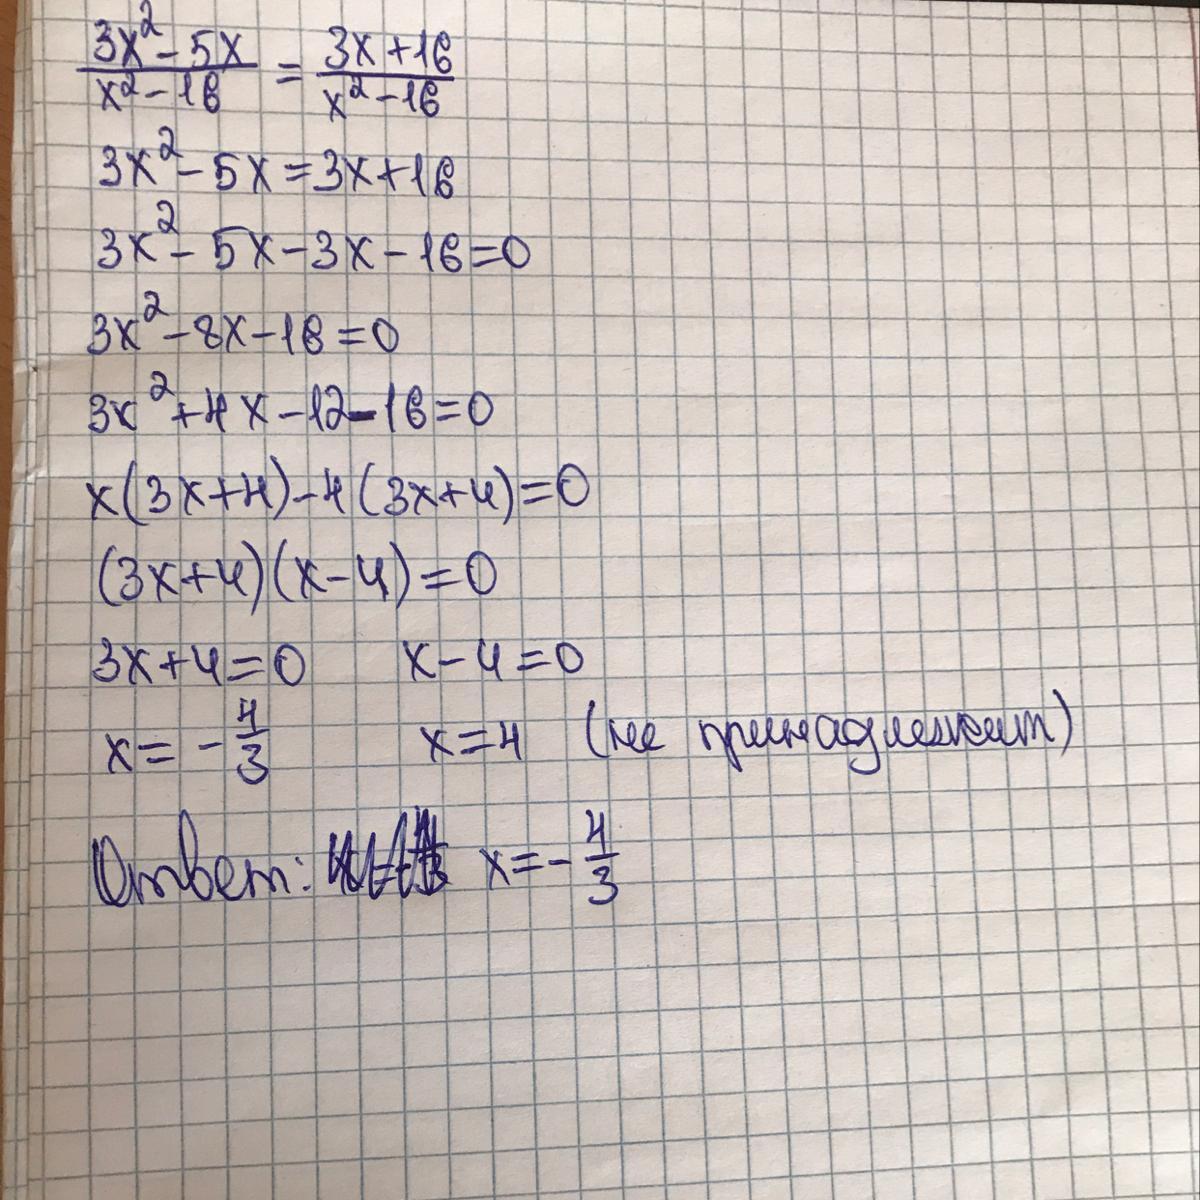 3x² - 5x / x² - 16 = 3x + 16 / x² - 16
3x² - 5x = 3x + 16
3x² - 5x - 3x - 16 = 0
3x² - 8x - 16 = 0
3x² + 4x - 12 - 16 = 0
x(3x+4) - 4(3x+4) = 0
(3x+4)(x-4) = 0
3x + 4 = 0    x - 4 = 0
x = - 4/3    x = 4 (не принадлежит)
Ответ: x = - 4/3